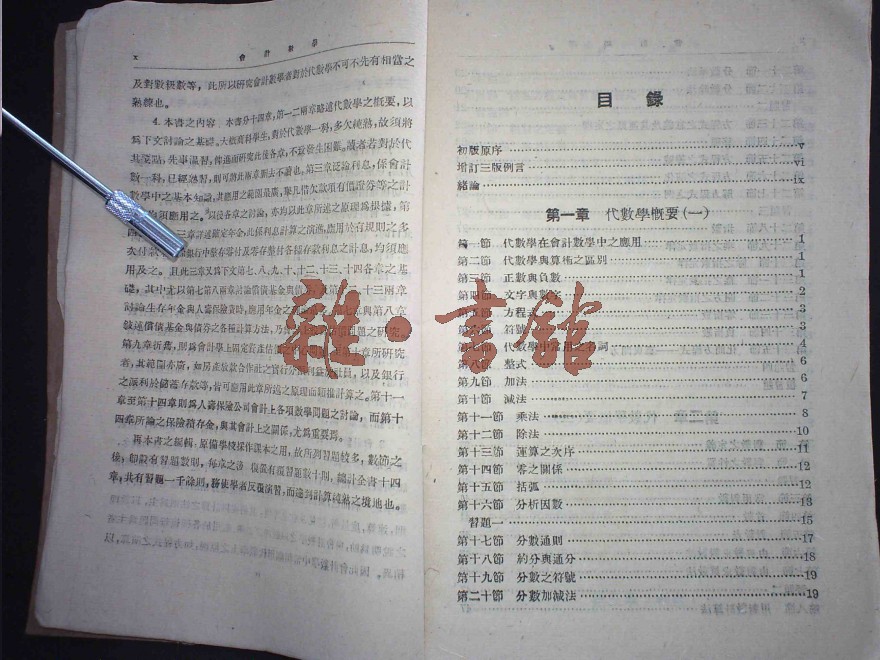 x 會計數學
及對數級數等，此所以研究會計數學者對於代數學不可不先有相當之
熟練也。
4. 本書之內容 本書分十四章，第一二兩章略述代數學之概要，以
爲下文討論之基礎。大概商科學生，對於代數學一科，多欠純熟，故須將
其要點，先事溫習，俾進而研究此後各章，不致發生困難。讀者若對於代
數一科，已經熟習，則可將此兩章刪去不讀也。第三章泛論利息，係會計
數學中之基本知識，其應用之範圍最廣，舉凡借欠款項有價證券等之計
均須應用之。以後各章之討論，亦均以此章所述之原理爲根據，第
三章詳述確定年金，此係利息計算之演進，應用於有規則之多
次付款 銀行中整存零付及零存整付各種存款利息之計息，均須應
用及之。且此三章又爲下文第七、八、九、十、十二、十三、十四各章之基
礎，其中尤以第七第八兩章討論償債基金與債券 十三兩章
討論生存年金與人壽保險賣時，應用年金之 章與第八章
敍述償債基金與債券之各種計算方法，乃 問題之研究。
第九章折舊，則爲會計學上固定資產估 第十章所研究
者，其範圍亦廣，如房產放款合作社之實行分 社員，以及銀行
之派利於儲蓄存款等，皆可應用此章所述之原理而類推計算之。第十一
章至第十四章則爲人壽保險公司會計上各項數學問題之討論，而第十
四章所論之保險積存金，與其會計上之關係，尤爲重要焉。
再本書之編輯，原備學校採作課本之用，故所列習題較多，數節之
後，即設有習題數則，每章之後 復設有覆習題數十則，總計全書十四
章，共有習題一千餘則，務使學者反覆演習，而達到計算純熟之境地也。
目錄
初版原序 v
增訂三版例言 vi
緒論 ix
第一章 代數學概要(一)
第一節 代數學在會計數學中之應用 1
第二節 代數學與算術之區別 1
第三節 正數與負數 1
第四節 文字與數字 2
第五節 方程式 3
第六節 符號 3
第七節 代數學中常用之名詞 4
第八節 整式 6
第九節 加法 6
第十節 減法 7
第十一節 乘法 8
第十二節 除法 10
第十三節 運算之次序 11
第十四節 零之關係 12
第十五節 括弧 12
第十六節 分析因數 13
習題一 15
第十七節 分數通則 17
第十八節 約分與通分 18
第十九節 分數之符號 19
第二十節 分數加減法 19
雜·書館